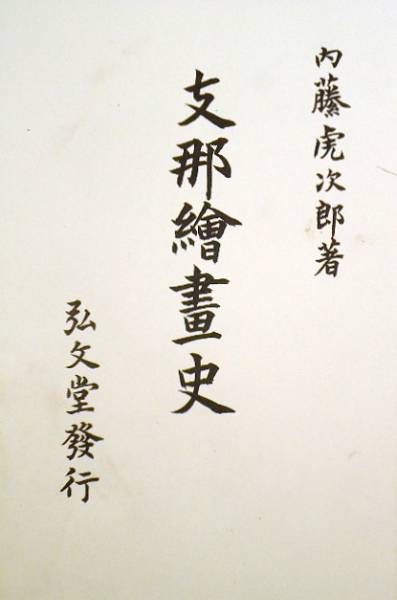 内藤虎次郎著
支那繪畫史
弘文堂發行